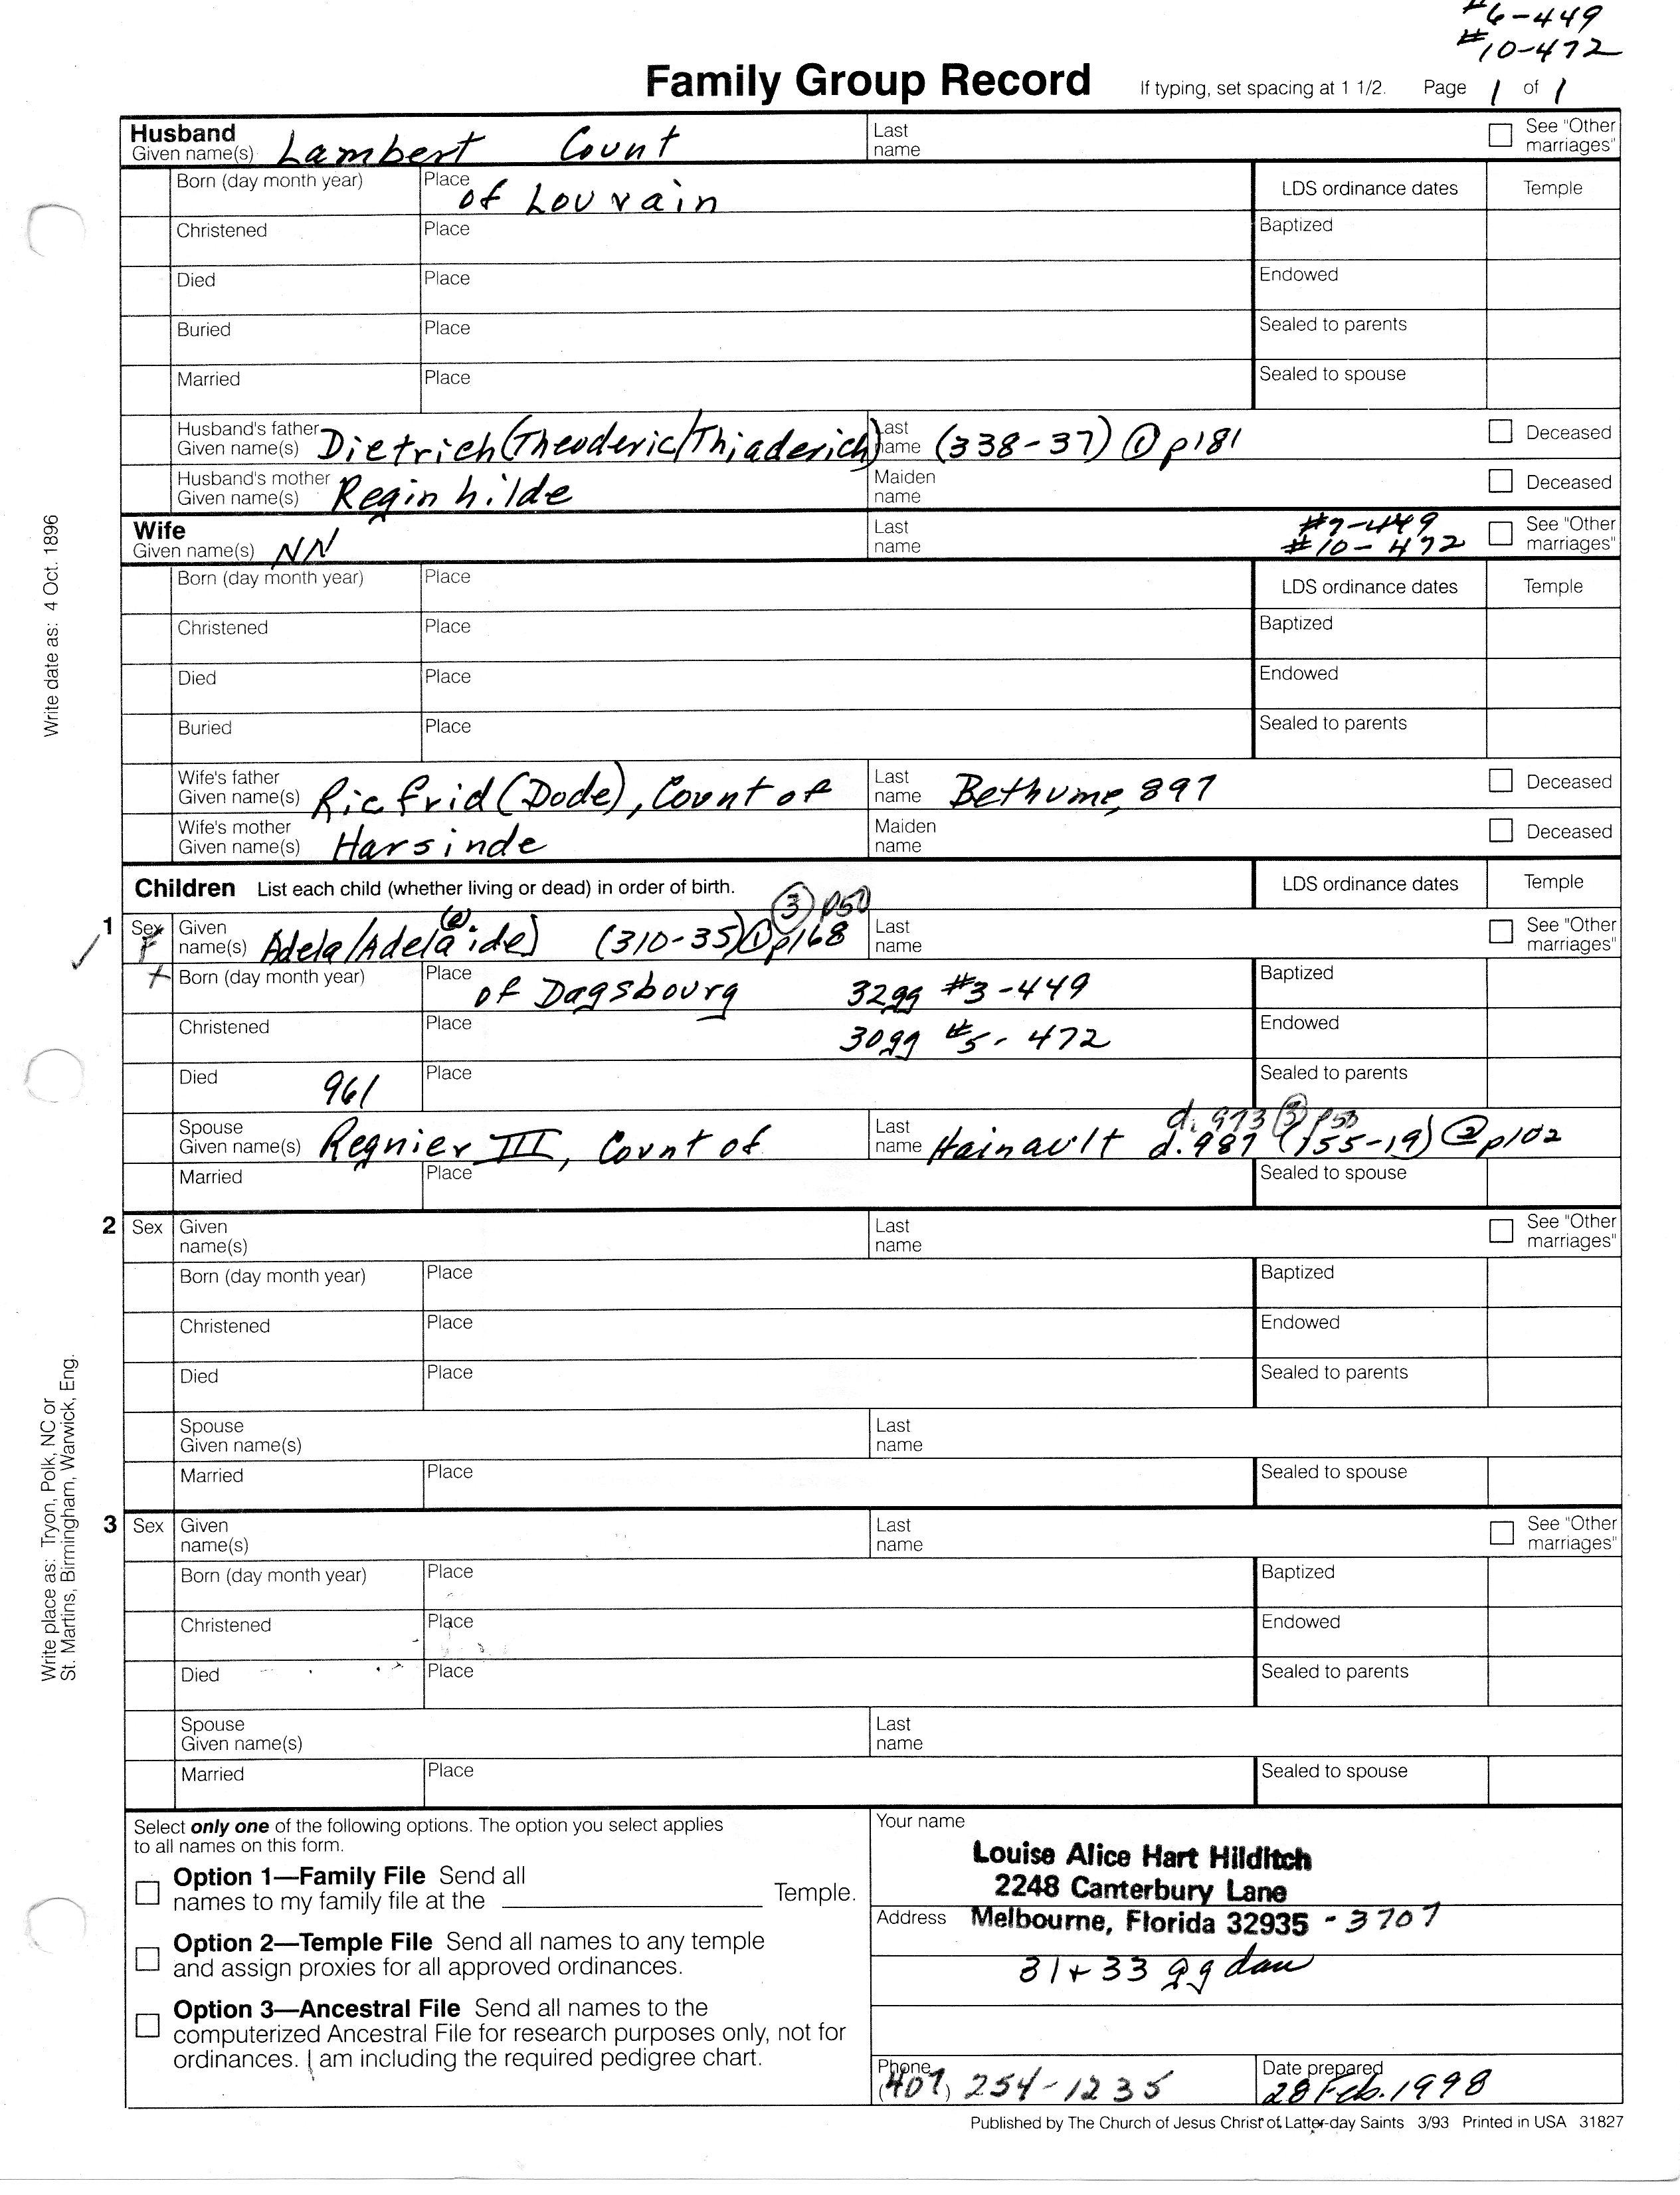 #6-449
#10-472
Family Group Record If typing, set spacing at 1 1/2. Page 1 of 1
Husband
Given name(s) Lambert Count Last name See "Other marriages"
Born (day month year) Place of Louvain LDS ordinance dates Temple
Christened Place Baptized
Died Place Endowed
Buried Place Sealed to parents
Married Place Sealed to spouse
Husband's father Given name(s) Dietrich (Theoderic/Thiaderich) Last name (338-37) ① p181 Deceased
Husband's mother Given name(s) Reginhilde Maiden name Deceased
Wife
Given name(s) NN Last name #7-449 #10-472 See "Other marriages"
Born (day month year) Place LDS ordinance dates Temple
Christened Place Baptized
Died Place Endowed
Buried Place Sealed to parents
Wife's father Given name(s) Ricfrid (Dode), Count of Last name Bethume, 897 Deceased
Wife's mother Given name(s) Harsinde Maiden name Deceased
Children List each child (whether living or dead) in order of birth. LDS ordinance dates Temple
③ p50
1 Sex F Given name(s) Adela/Adelaide) (310-35) ① p168 Last name See "Other marriages"
Born (day month year) Place of Dagsbourg 32gg #3-449 Baptized
Christened Place 30gg #5-472 Endowed
Died 961 Place Sealed to parents
d. 973 ③ p50
Spouse Given name(s) Regnier III, Count of Last name Hainault d. 987 (155-19) ② p102
Married Place Sealed to spouse
2 Sex Given name(s) Last name See "Other marriages"
Born (day month year) Place Baptized
Christened Place Endowed
Died Place Sealed to parents
Spouse Given name(s) Last name
Married Place Sealed to spouse
3 Sex Given name(s) Last name See "Other marriages"
Born (day month year) Place Baptized
Christened Place Endowed
Died Place Sealed to parents
Spouse Given name(s) Last name
Married Place Sealed to spouse
Select only one of the following options. The option you select applies
to all names on this form.
Option 1—Family File Send all
names to my family file at the Temple.
Option 2—Temple File Send all names to any temple
and assign proxies for all approved ordinances.
Option 3—Ancestral File Send all names to the
computerized Ancestral File for research purposes only, not for
ordinances. I am including the required pedigree chart.
Your name
Louise Alice Hart Hilditch
2248 Canterbury Lane
Address Melbourne, Florida 32935 -3707
31+33 gg dau
Phone (407) 254-1235 Date prepared 28 Feb. 1998
Published by The Church of Jesus Christ of Latter-day Saints 3/93 Printed in USA 31827
Write date as: 4 Oct. 1896
Write place as: Tryon, Polk, NC or
St. Martins, Birmingham, Warwick, Eng.